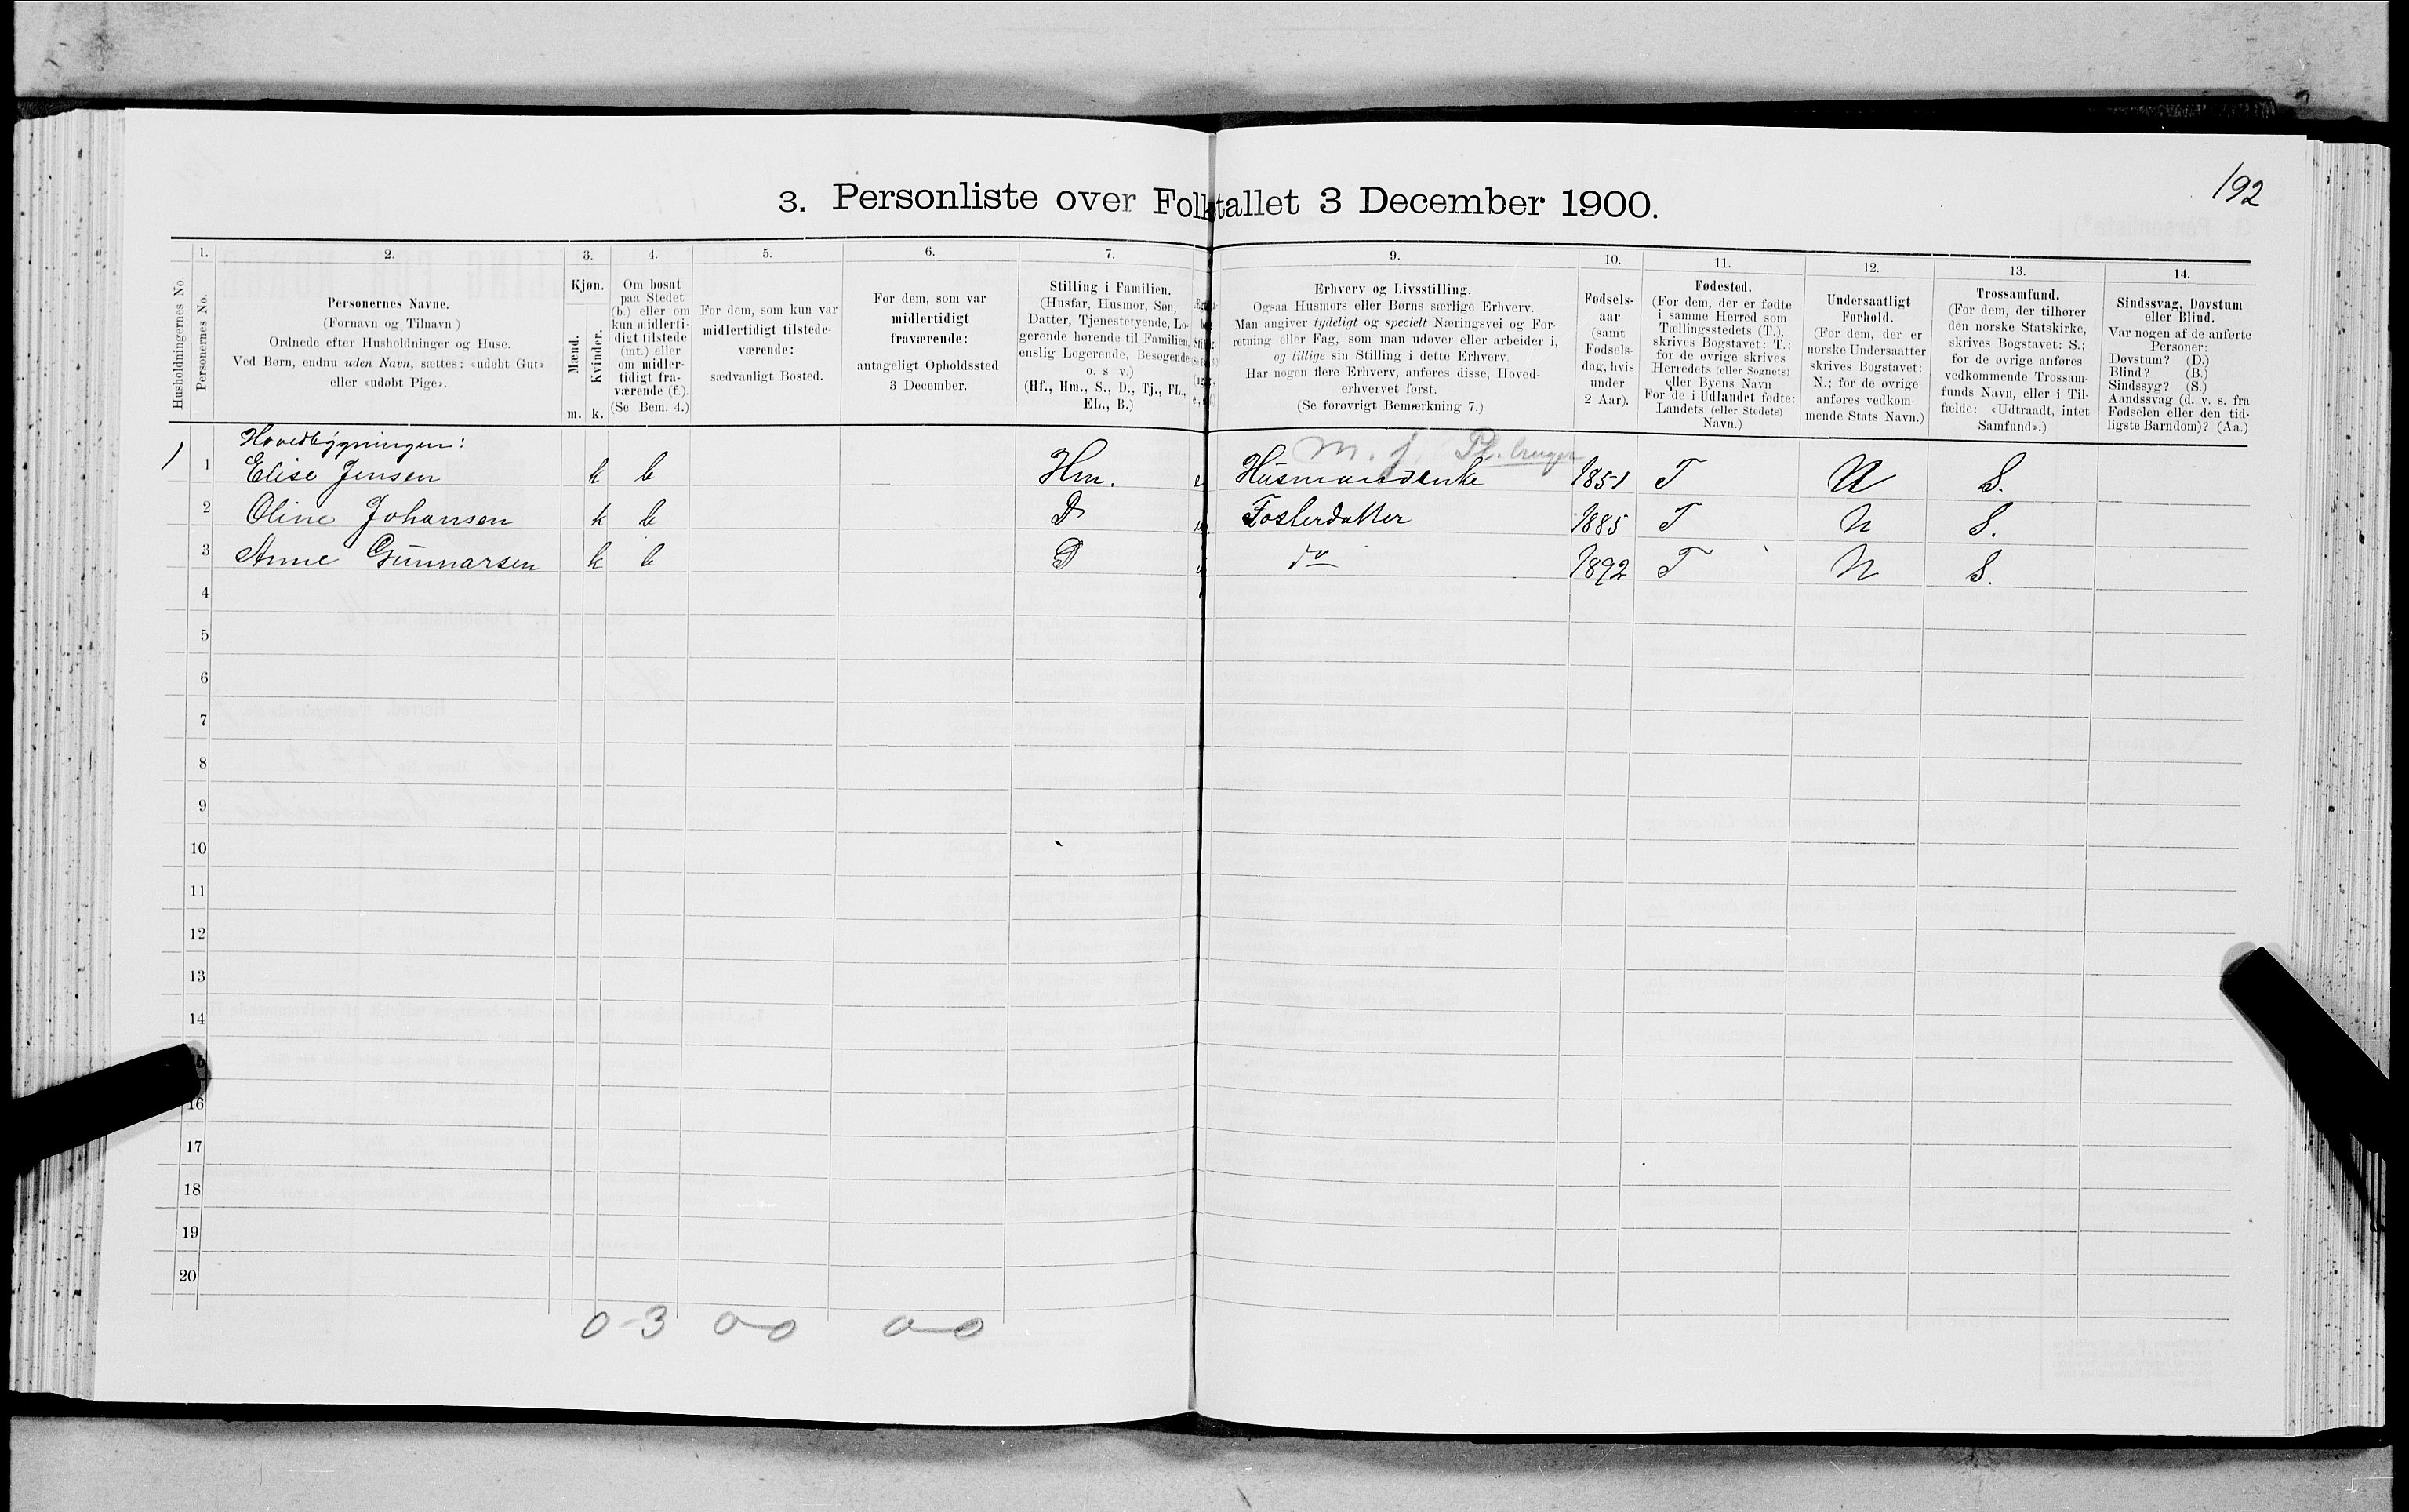 192
3. Personliste over Folketallet 3 December 1900.
1. 2. 3. 4. 5. 6. 7. 9. 10. 11. 12. 13. 14.
Husholdningernes No.
Personernes No.
Personernes Navne.
(Fornavn og Tilnavn)
Ordnede efter Husholdninger og Huse.
Ved Børn, endnu uden Navn, sættes: «udøbt Gut»
eller «udøbt Pige».
Kjøn.
Mænd.
Kvinder.
m. k.
Om bosat
paa Stedet
(b.) eller om
kun midlerti-
digt tilstede
(mt.) eller
om midler-
tidigt fra-
værende (f.).
(Se Bem. 4.)
For dem, som kun var
midlertidigt tilstede-
værende:
sædvanligt Bosted.
For dem, som var
midlertidigt
fraværende:
antageligt Opholdssted
3 December.
Stilling i Familien.
(Husfar, Husmor, Søn,
Datter, Tjenestetyende, Lo-
gerende hørende til Familien,
enslig Logerende, Besøgende
o. s v.)
(Hf., Hm., S., D., Tj., FL.,
EL., B.)
Erhverv og Livsstilling.
Ogsaa Husmors eller Børns særlige Erhverv.
Man angiver tydeligt og specielt Næringsvei og For-
retning eller Fag, som man udøver eller arbeider i,
og tillige sin Stilling i dette Erhverv.
Har nogen flere Erhverv, anføres disse, Hoved-
erhvervet først.
(Se forøvrigt Bemærkning 7.)
Fødsels-
aar
(samt
Fødsels-
dag, hvis
under
2 Aar).
Fødested.
(For dem, der er fødte
i samme Herred som
Tællingsstedets (T.),
skrives Bogstavet: T.;
for de øvrige skrives
Herredets (eller Sognets)
eller Byens Navn
For de i Udlandet fødte:
Landets (eller Stedets)
Navn.)
Undersaatligt
Forhold.
(For dem, der er
norske Undersaatter
skrives Bogstavet:
N.; for de øvrige
anføres vedkom-
mende Stats Navn.)
Trossamfund.
(For dem, der tilhører
den norske Statskirke,
skrives Bogstavet: S.;
for de øvrige anføres
vedkommende Trossam-
funds Navn, eller i Til-
fælde: «Udtraadt, intet
Samfund».)
Sindssvag, Døvstum
eller Blind.
Var nogen af de anførte
Personer:
Døvstum? (D.)
Blind? (B.)
Sindssyg? (S.)
Aandssvag (d. v. s. fra
Fødselen eller den tid-
ligste Barndom)? (Aa.)
Hovedbygningen:
m. j. Pl. bruger
1 1 Elise Jensen k b Hm. Husmandsenke 1851 T N S.
2 Oline Johansen k b D Fosterdatter 1885 T N S.
3 Anne Gunnarsen k b D do 1892 T N S.
4
5
6
7
8
9
10
11
12
13
14
15
16
17
18
19
20
0-3 0-0 0-0